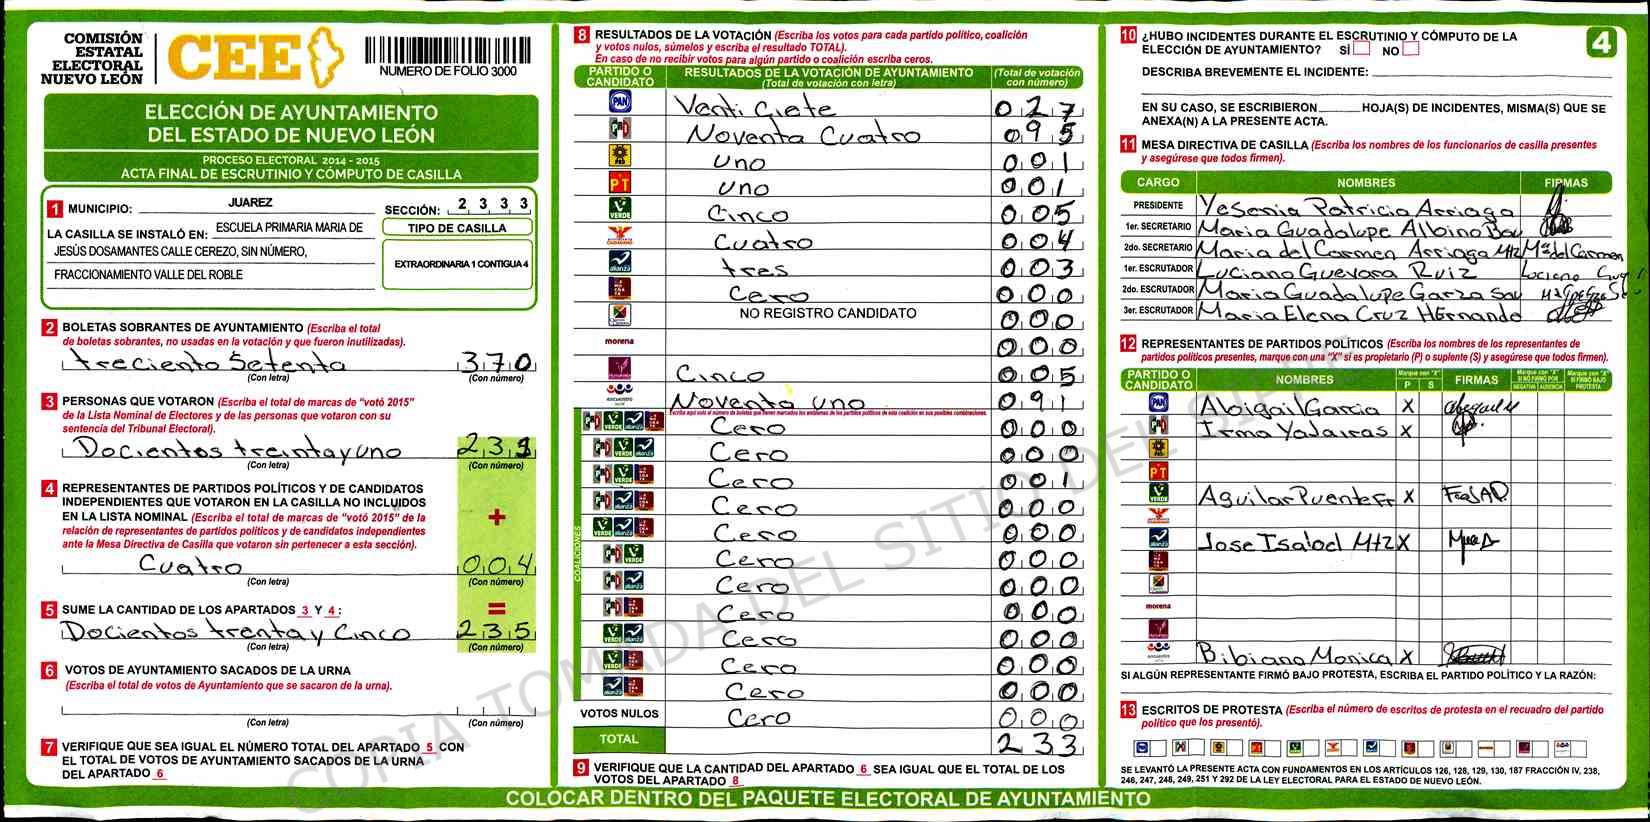 COMISIÓN
ESTATAL
ELECTORAL
NUEVO LEÓN
CEE
NUMERO DE FOLIO 3000
ELECCIÓN DE AYUNTAMIENTO
DEL ESTADO DE NUEVO LEÓN
PROCESO ELECTORAL 2014 - 2015
ACTA FINAL DE ESCRUTINIO Y CÓMPUTO DE CASILLA
1 MUNICIPIO: JUAREZ
SECCIÓN: 2 3 3 3
LA CASILLA SE INSTALÓ EN: ESCUELA PRIMARIA MARIA DE
JESÚS DOSAMANTES CALLE CEREZO, SIN NÚMERO,
FRACCIONAMIENTO VALLE DEL ROBLE
TIPO DE CASILLA
EXTRAORDINARIA 1 CONTIGUA 4
2 BOLETAS SOBRANTES DE AYUNTAMIENTO (Escriba el total
de boletas sobrantes, no usadas en la votación y que fueron inutilizadas).
treciento Setenta 370
(Con letra) (Con número)
3 PERSONAS QUE VOTARON (Escriba el total de marcas de “votó 2015”
de la Lista Nominal de Electores y de las personas que votaron con su
sentencia del Tribunal Electoral).
Docientos treintayuno 231
(Con letra) (Con número)
4 REPRESENTANTES DE PARTIDOS POLÍTICOS Y DE CANDIDATOS
INDEPENDIENTES QUE VOTARON EN LA CASILLA NO INCLUIDOS
EN LA LISTA NOMINAL (Escriba el total de marcas de “votó 2015” de la
relación de representantes de partidos políticos y de candidatos independientes
ante la Mesa Directiva de Casilla que votaron sin pertenecer a esta sección).
+
Cuatro 004
(Con letra) (Con número)
5 SUME LA CANTIDAD DE LOS APARTADOS 3 Y 4 :
=
Docientos trenta y Cinco 235
(Con letra) (Con número)
6 VOTOS DE AYUNTAMIENTO SACADOS DE LA URNA
(Escriba el total de votos de Ayuntamiento que se sacaron de la urna).
(Con letra) (Con número)
7 VERIFIQUE QUE SEA IGUAL EL NÚMERO TOTAL DEL APARTADO 5 CON
EL TOTAL DE VOTOS DE AYUNTAMIENTO SACADOS DE LA URNA
DEL APARTADO 6
8 RESULTADOS DE LA VOTACIÓN (Escriba los votos para cada partido político, coalición
y votos nulos, súmelos y escriba el resultado TOTAL).
En caso de no recibir votos para algún partido o coalición escriba ceros.
PARTIDO O CANDIDATO RESULTADOS DE LA VOTACIÓN DE AYUNTAMIENTO (Total de votación con letra) (Total de votación con número)
PAN Venti Ciete 027
PRD Noventa Cuatro 095
PRD uno 001
PT uno 001
VERDE Cinco 005
Cuatro 004
alianza tres 003
Cero 000
NO REGISTRO CANDIDATO 000
morena 000
Cinco 005
encuentro Noventa uno 091
Escriba aquí solo el número de boletas que tienen marcados los emblemas de los partidos políticos de esta coalición en sus posibles combinaciones.
COALICIONES
Cero 000
Cero 000
Cero 001
Cero 000
Cero 000
Cero 000
Cero 000
Cero 000
Cero 000
Cero 000
Cero 000
VOTOS NULOS Cero 000
TOTAL 233
9 VERIFIQUE QUE LA CANTIDAD DEL APARTADO 6 SEA IGUAL QUE EL TOTAL DE LOS
VOTOS DEL APARTADO 8
10 ¿HUBO INCIDENTES DURANTE EL ESCRUTINIO Y CÓMPUTO DE LA
ELECCIÓN DE AYUNTAMIENTO? SÍ NO
4
DESCRIBA BREVEMENTE EL INCIDENTE:
EN SU CASO, SE ESCRIBIERON HOJA(S) DE INCIDENTES, MISMA(S) QUE SE
ANEXA(N) A LA PRESENTE ACTA.
11 MESA DIRECTIVA DE CASILLA (Escriba los nombres de los funcionarios de casilla presentes
y asegúrese que todos firmen).
CARGO NOMBRES FIRMAS
PRESIDENTE Yesenia Patricia Arriaga
1er. SECRETARIO Maria Guadalupe Albino Bau
2do. SECRETARIO Maria del Carmen Arriaga Mtz Mª del Carmen
1er. ESCRUTADOR Luciano Guevara Ruiz Luciano
2do. ESCRUTADOR Maria Guadalupe Garza Sau
3er. ESCRUTADOR Maria Elena Cruz HErnando
12 REPRESENTANTES DE PARTIDOS POLÍTICOS (Escriba los nombres de los representantes de
partidos políticos presentes, marque con una “X” si es propietario (P) o suplente (S) y asegúrese que todos firmen).
PARTIDO O CANDIDATO NOMBRES Marque con “X” P S FIRMAS Marque con “X” SI NO FIRMÓ POR NEGATIVA AUSENCIA Marque con “X” SI FIRMÓ BAJO PROTESTA
PAN Abigail Garcia X
Irma Yadairas X
PT
VERDE Aguilar Puente Ff X
alianza Jose Isabel Mtz X
morena
Bibiana Monica X
SI ALGÚN REPRESENTANTE FIRMÓ BAJO PROTESTA, ESCRIBA EL PARTIDO POLÍTICO Y LA RAZÓN:
13 ESCRITOS DE PROTESTA (Escriba el número de escritos de protesta en el recuadro del partido
político que los presentó).
SE LEVANTÓ LA PRESENTE ACTA CON FUNDAMENTOS EN LOS ARTÍCULOS 126, 128, 129, 130, 187 FRACCIÓN IV, 238,
246, 247, 248, 249, 251 Y 292 DE LA LEY ELECTORAL PARA EL ESTADO DE NUEVO LEÓN.
COLOCAR DENTRO DEL PAQUETE ELECTORAL DE AYUNTAMIENTO
COPIA TOMADA DEL SITIO DEL